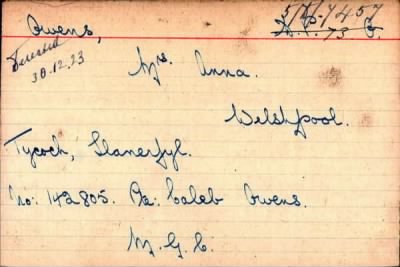 Owens,
5/Mp. 7457
73
30.12.23
Mrs. Anna.
Welshpool.
Tycoch, Llanerfyl.
No: 142805. Pte: Caleb Owens.
M.G.C.